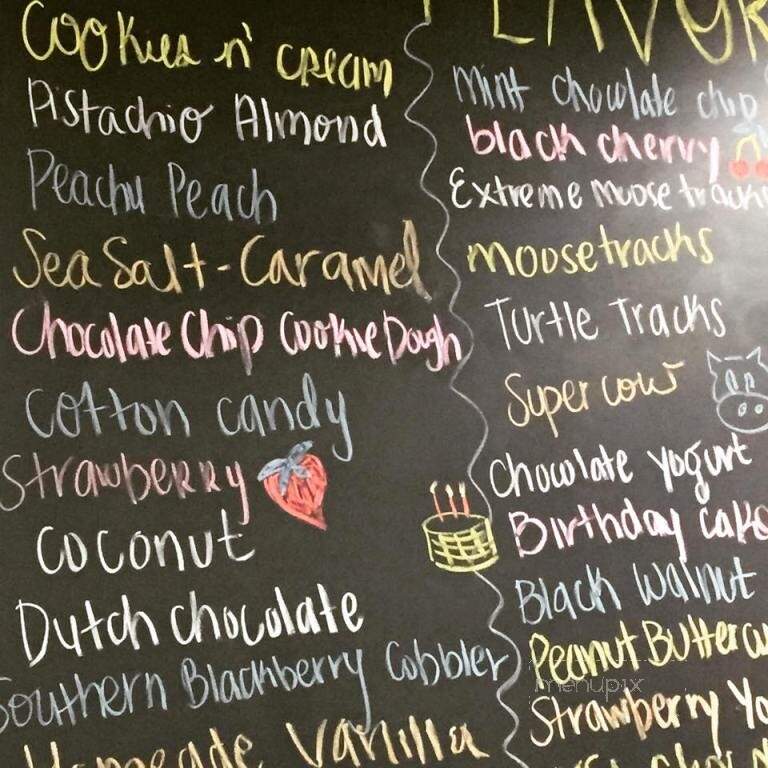 Cookies n' cream
Pistachio Almond
Peachy Peach
Sea Salt-Caramel
Chocolate Chip Cookie Dough
Cotton candy
Strawberry
Coconut
Dutch chocolate
Southern Blackberry Cobbler
Homemade Vanilla
mint chocolate chip
black cherry
Extreme moose tracks
moosetracks
Turtle Tracks
Super cow
Chocolate yogurt
Birthday cake
Black Walnut
Peanut Butter
menupix
Strawberry Yo